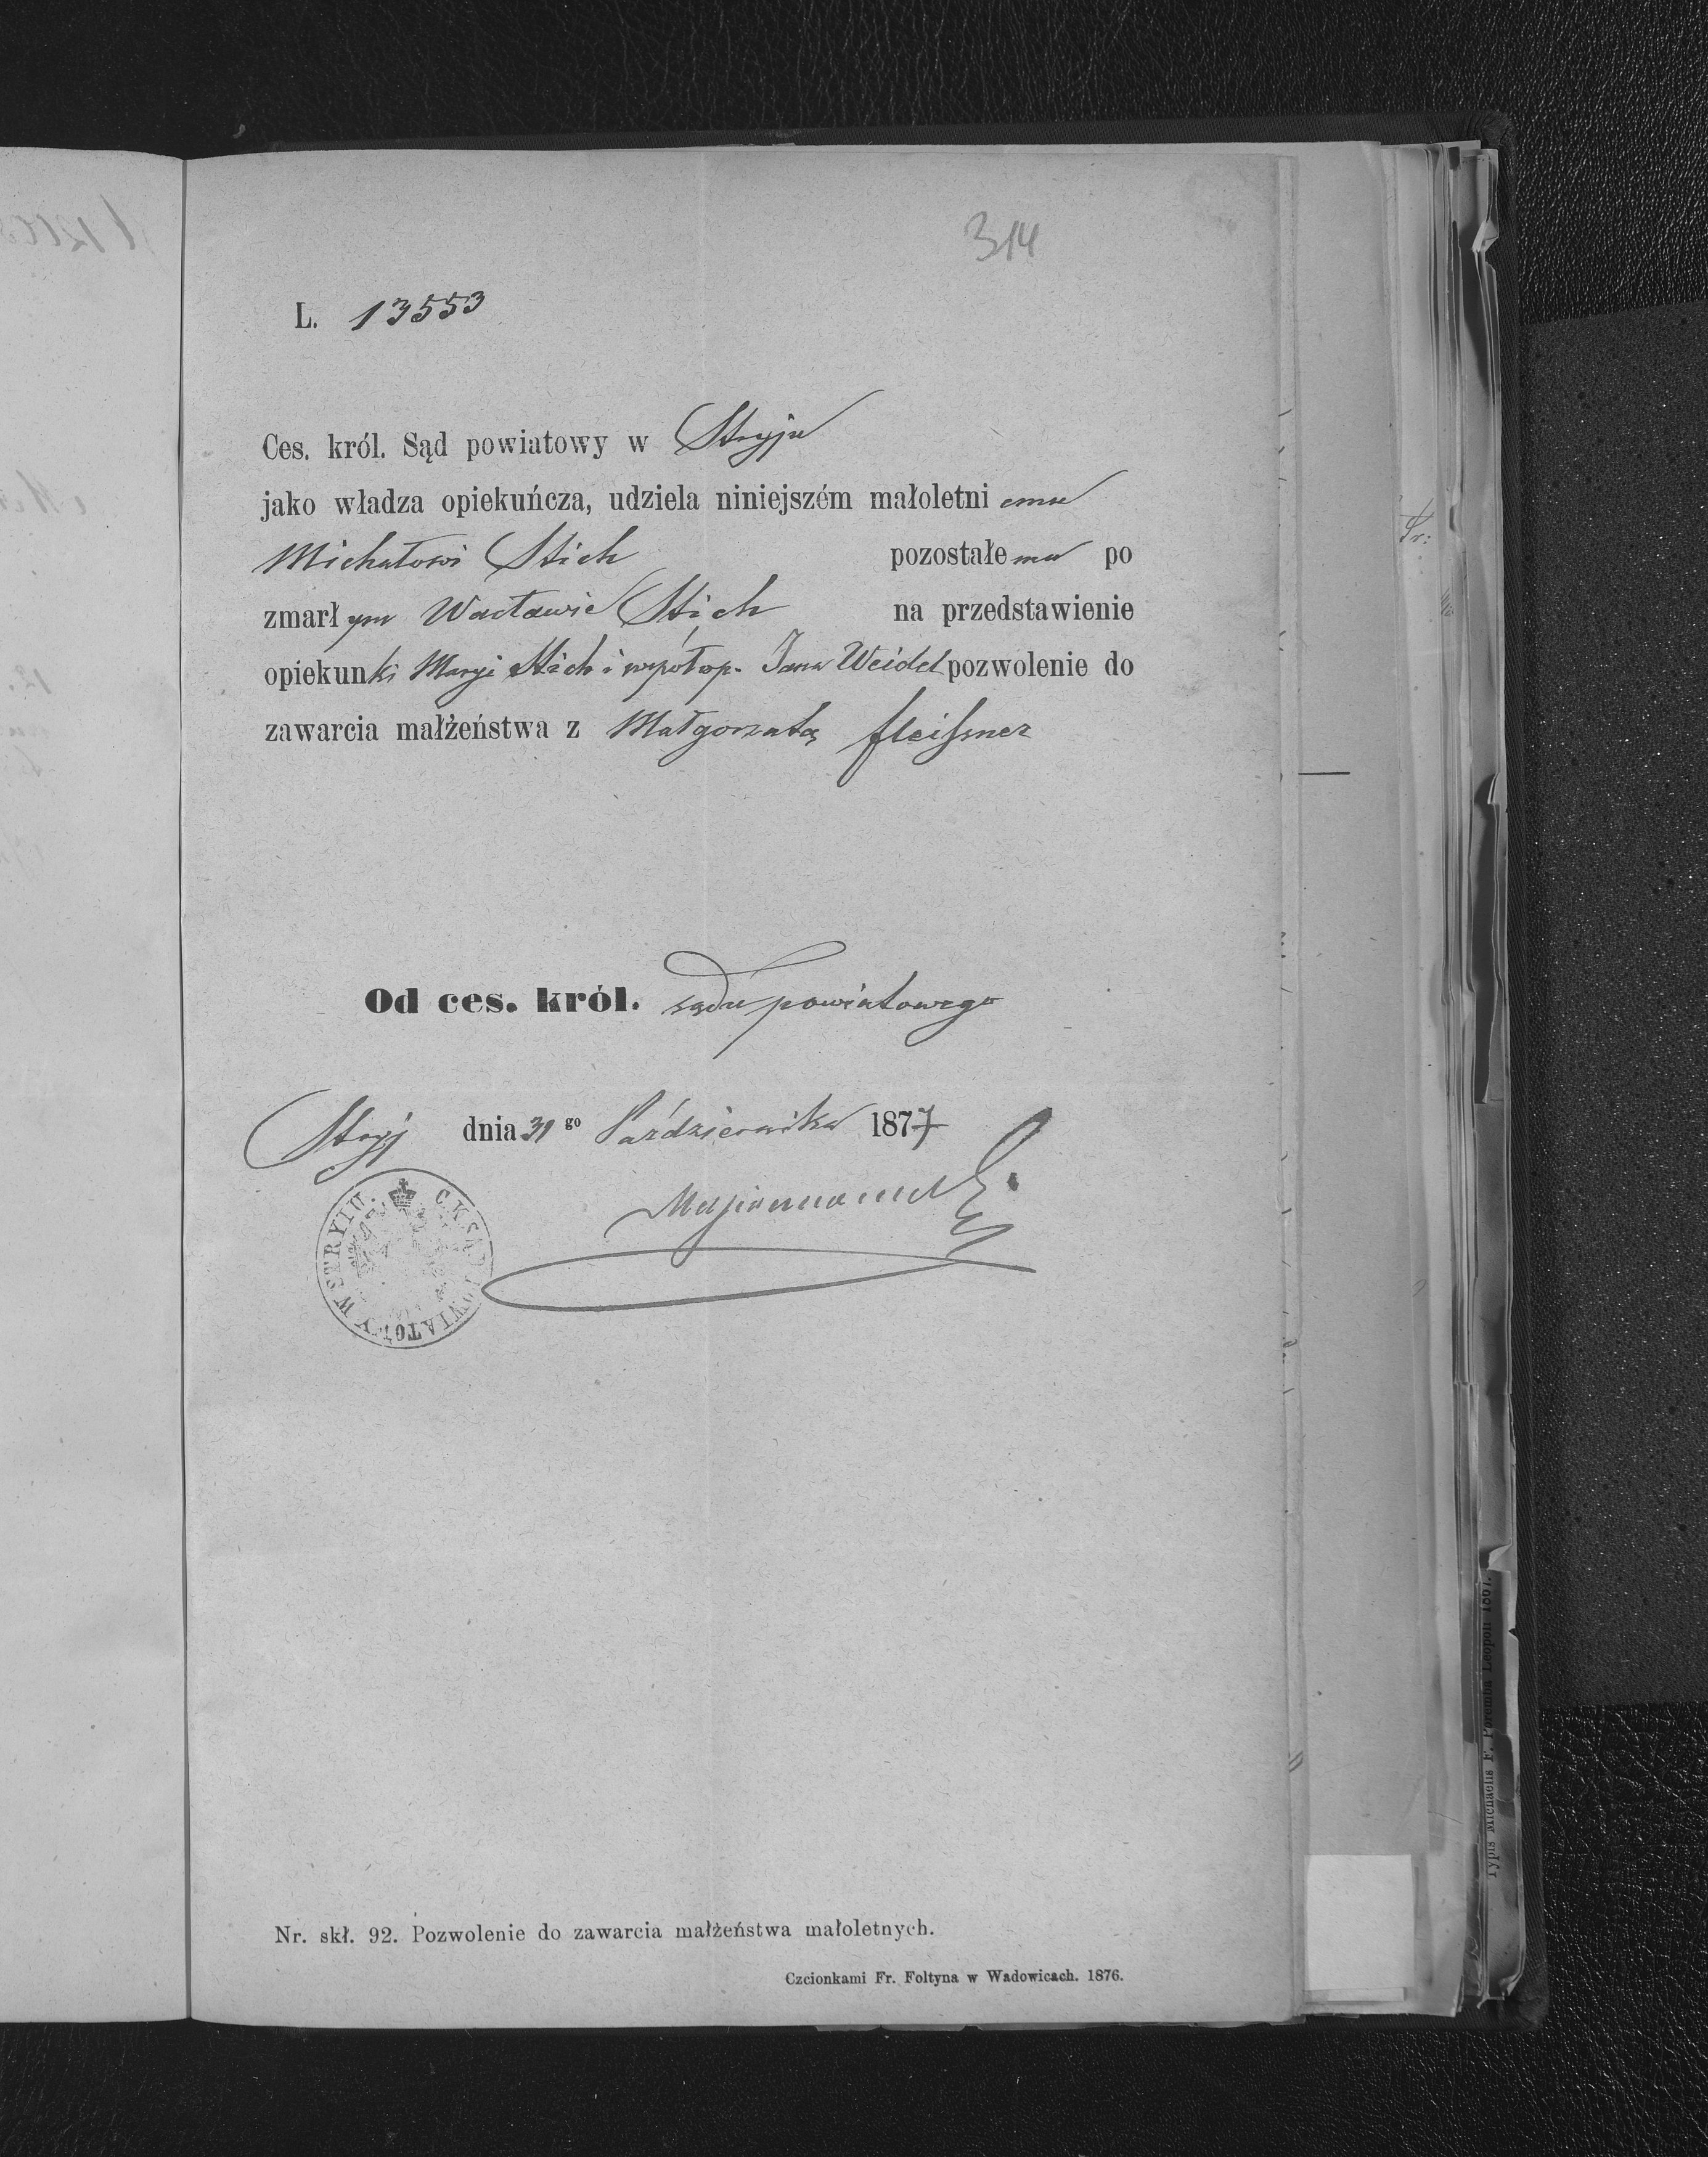 314
L. 13553
Ces. król. Sąd powiatowy w Stryju
jako władza opiekuńcza, udziela niniejszém małoletniemu
Michałowi Stich pozostałemu po
zmarłym Wacławie Stich na przedstawienie
opiekunki Maryi Stich i współop. Jana Weidel pozwolenie do
zawarcia małżeństwa z Małgorzatą Fleißner
Od ces. król. sądu powiatowego
Stryj dnia 31go Października 1877
C.K. SĄD POWIATOWY W STRYIU.
Nr. skł. 92. Pozwolenie do zawarcia małżeństwa małoletnych.
Czcionkami Fr. Foltyna w Wadowicach. 1876.
Typis Michaelis F. Poremba Leopoli 1867.